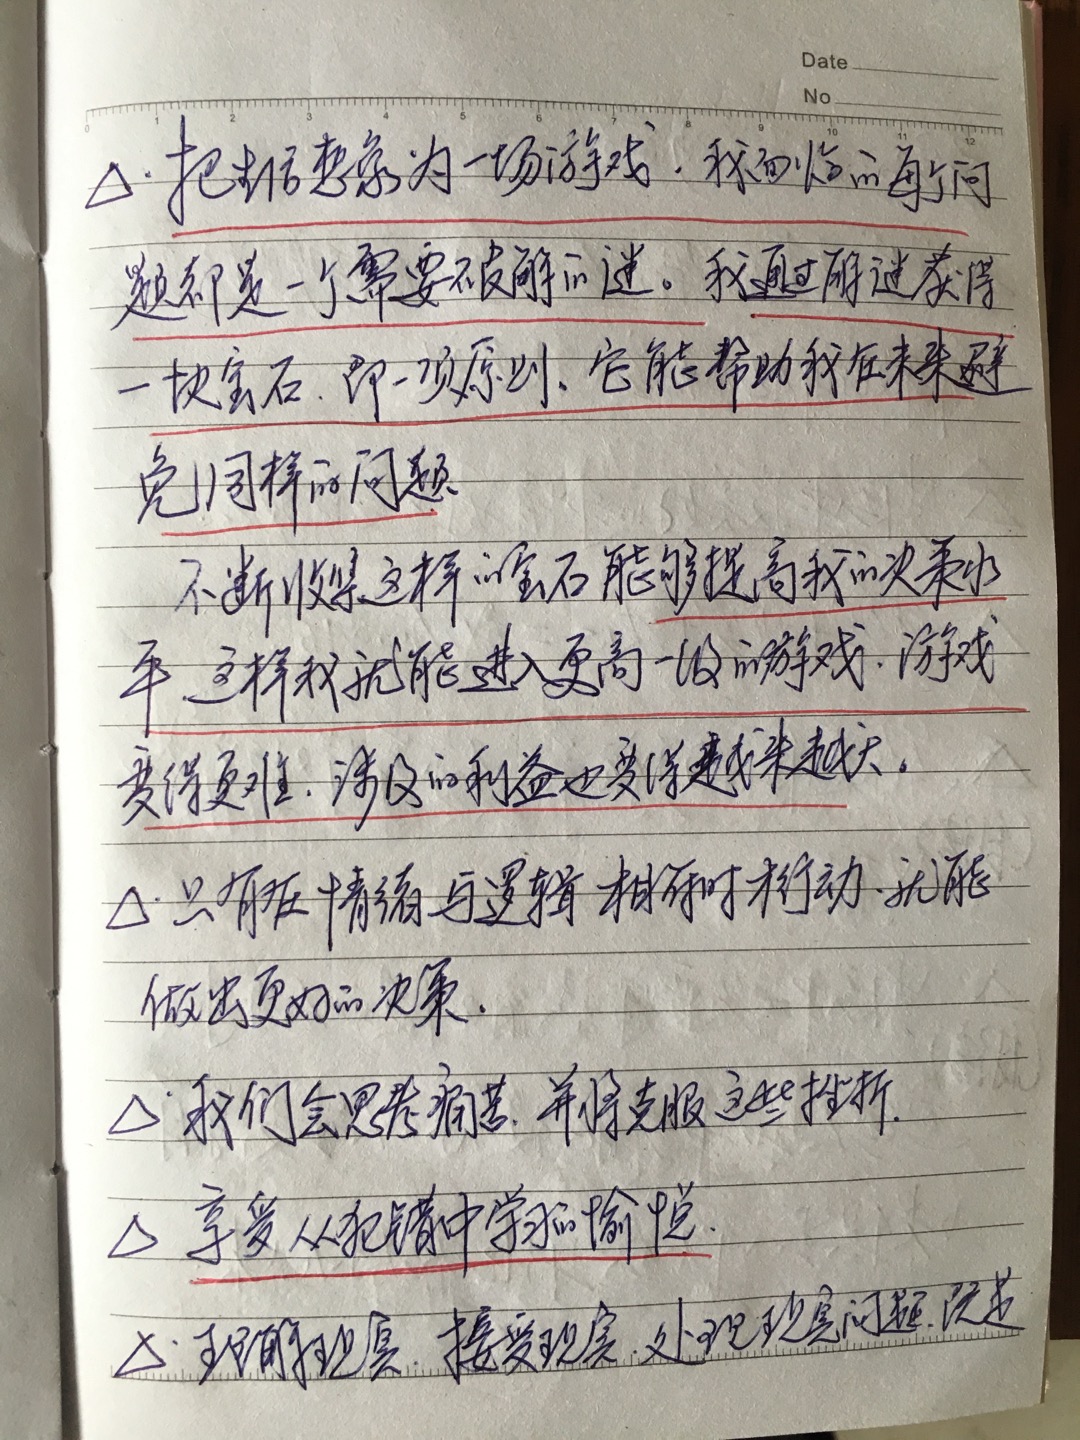 Date
No
0 1 2 3 4 5 6 7 8 9 10 11 12
△·把生活想象为一场游戏.我面临的每个问
题都是一个需要破解的谜。我通过解谜获得
一块宝石.即一项原则.它能帮助我在未来避
免同样的问题
不断收集这样的宝石能够提高我的决策水
平.这样我就能进入更高一级的游戏.游戏
变得更难.涉及的利益也变得越来越大。
△·只有在情绪与逻辑相符时才行动.就能
做出更好的决策.
△·我们会思考痛苦.并将克服这些挫折.
△ 享受从犯错中学习的愉悦.
△·理解现实.接受现实.处理现实问题.既是